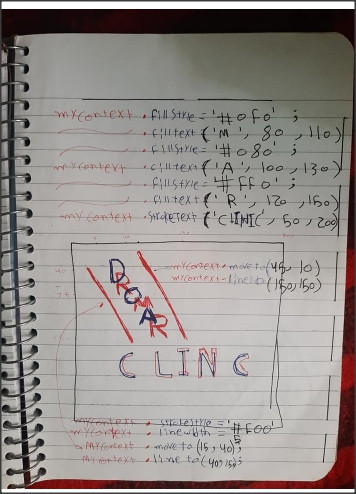 myContext . fillStyle = '#0F0' ;
. filltext ('M' , 80 , 110)
. fillStyle = '#080' ;
myContext . filltext ('A' , 100 , 130)
. fillStyle = '#FF0' ;
. filltext ('R' , 120 , 150)
myContext . strokeText ('CLINIC' , 50 , 200)
myContext . moveto (45, 10)
myContext . lineto (150, 150)
DR OMAR
CLINC
myContext . strokeStyle = '#F00'
myContext . linewidth = 5
myContext . moveto (15, 40);
myContext . lineto